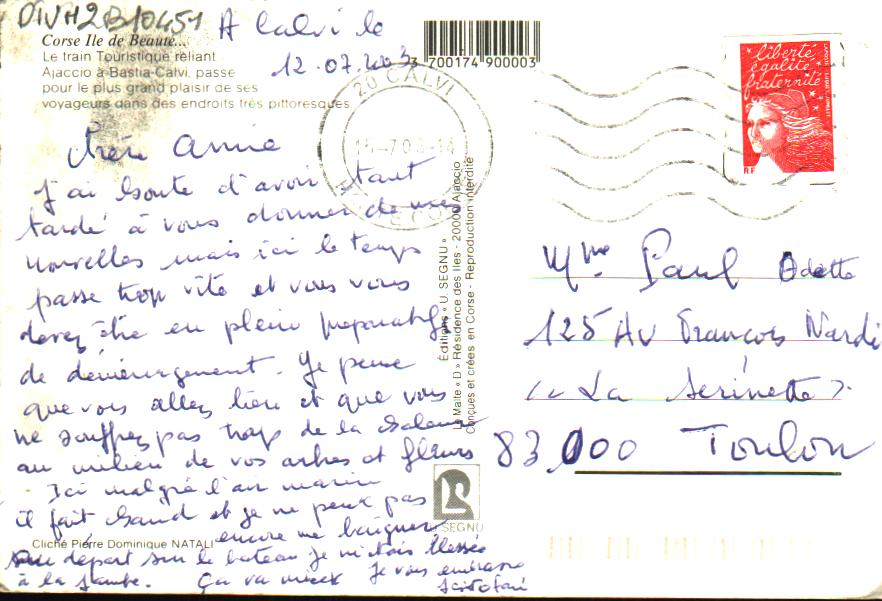 DIVH2B10451
A Calvi le
12.07.2003
Corse Ile de Beauté...
Le train Touristique reliant
Ajaccio à Bastia-Calvi, passe
pour le plus grand plaisir de ses
voyageurs dans des endroits très pittoresques.
3 700174 900003
20 CALVI
liberté
égalité
fraternité
RF
Annie
J'ai honte d'avoir tant
tardé à vous donner de mes
nouvelles mais ici le temps
passe trop vite et vous vous
devez être en plein préparatifs
de déménagement. Je pense
que vous allez bien et que vous
ne souffrez pas trop de la chaleur
au milieu de vos arbres et fleurs
Ici malgré l'air marin
il fait chaud et je ne peux pas
encore me baigner
départ sur le bateau je m'étais blessée
à la jambe. Ça va mieux Je vous embrasse
Éditions « U. SEGNU »
Le Maïte « D » Résidence des Iles - 20000 Ajaccio
Conçues et créées en Corse - Reproduction interdite
U SEGNU
Cliché Pierre Dominique NATALI
Mme Paul Odette
125 Av François Nardi
« La Serinette »
83.000 Toulon